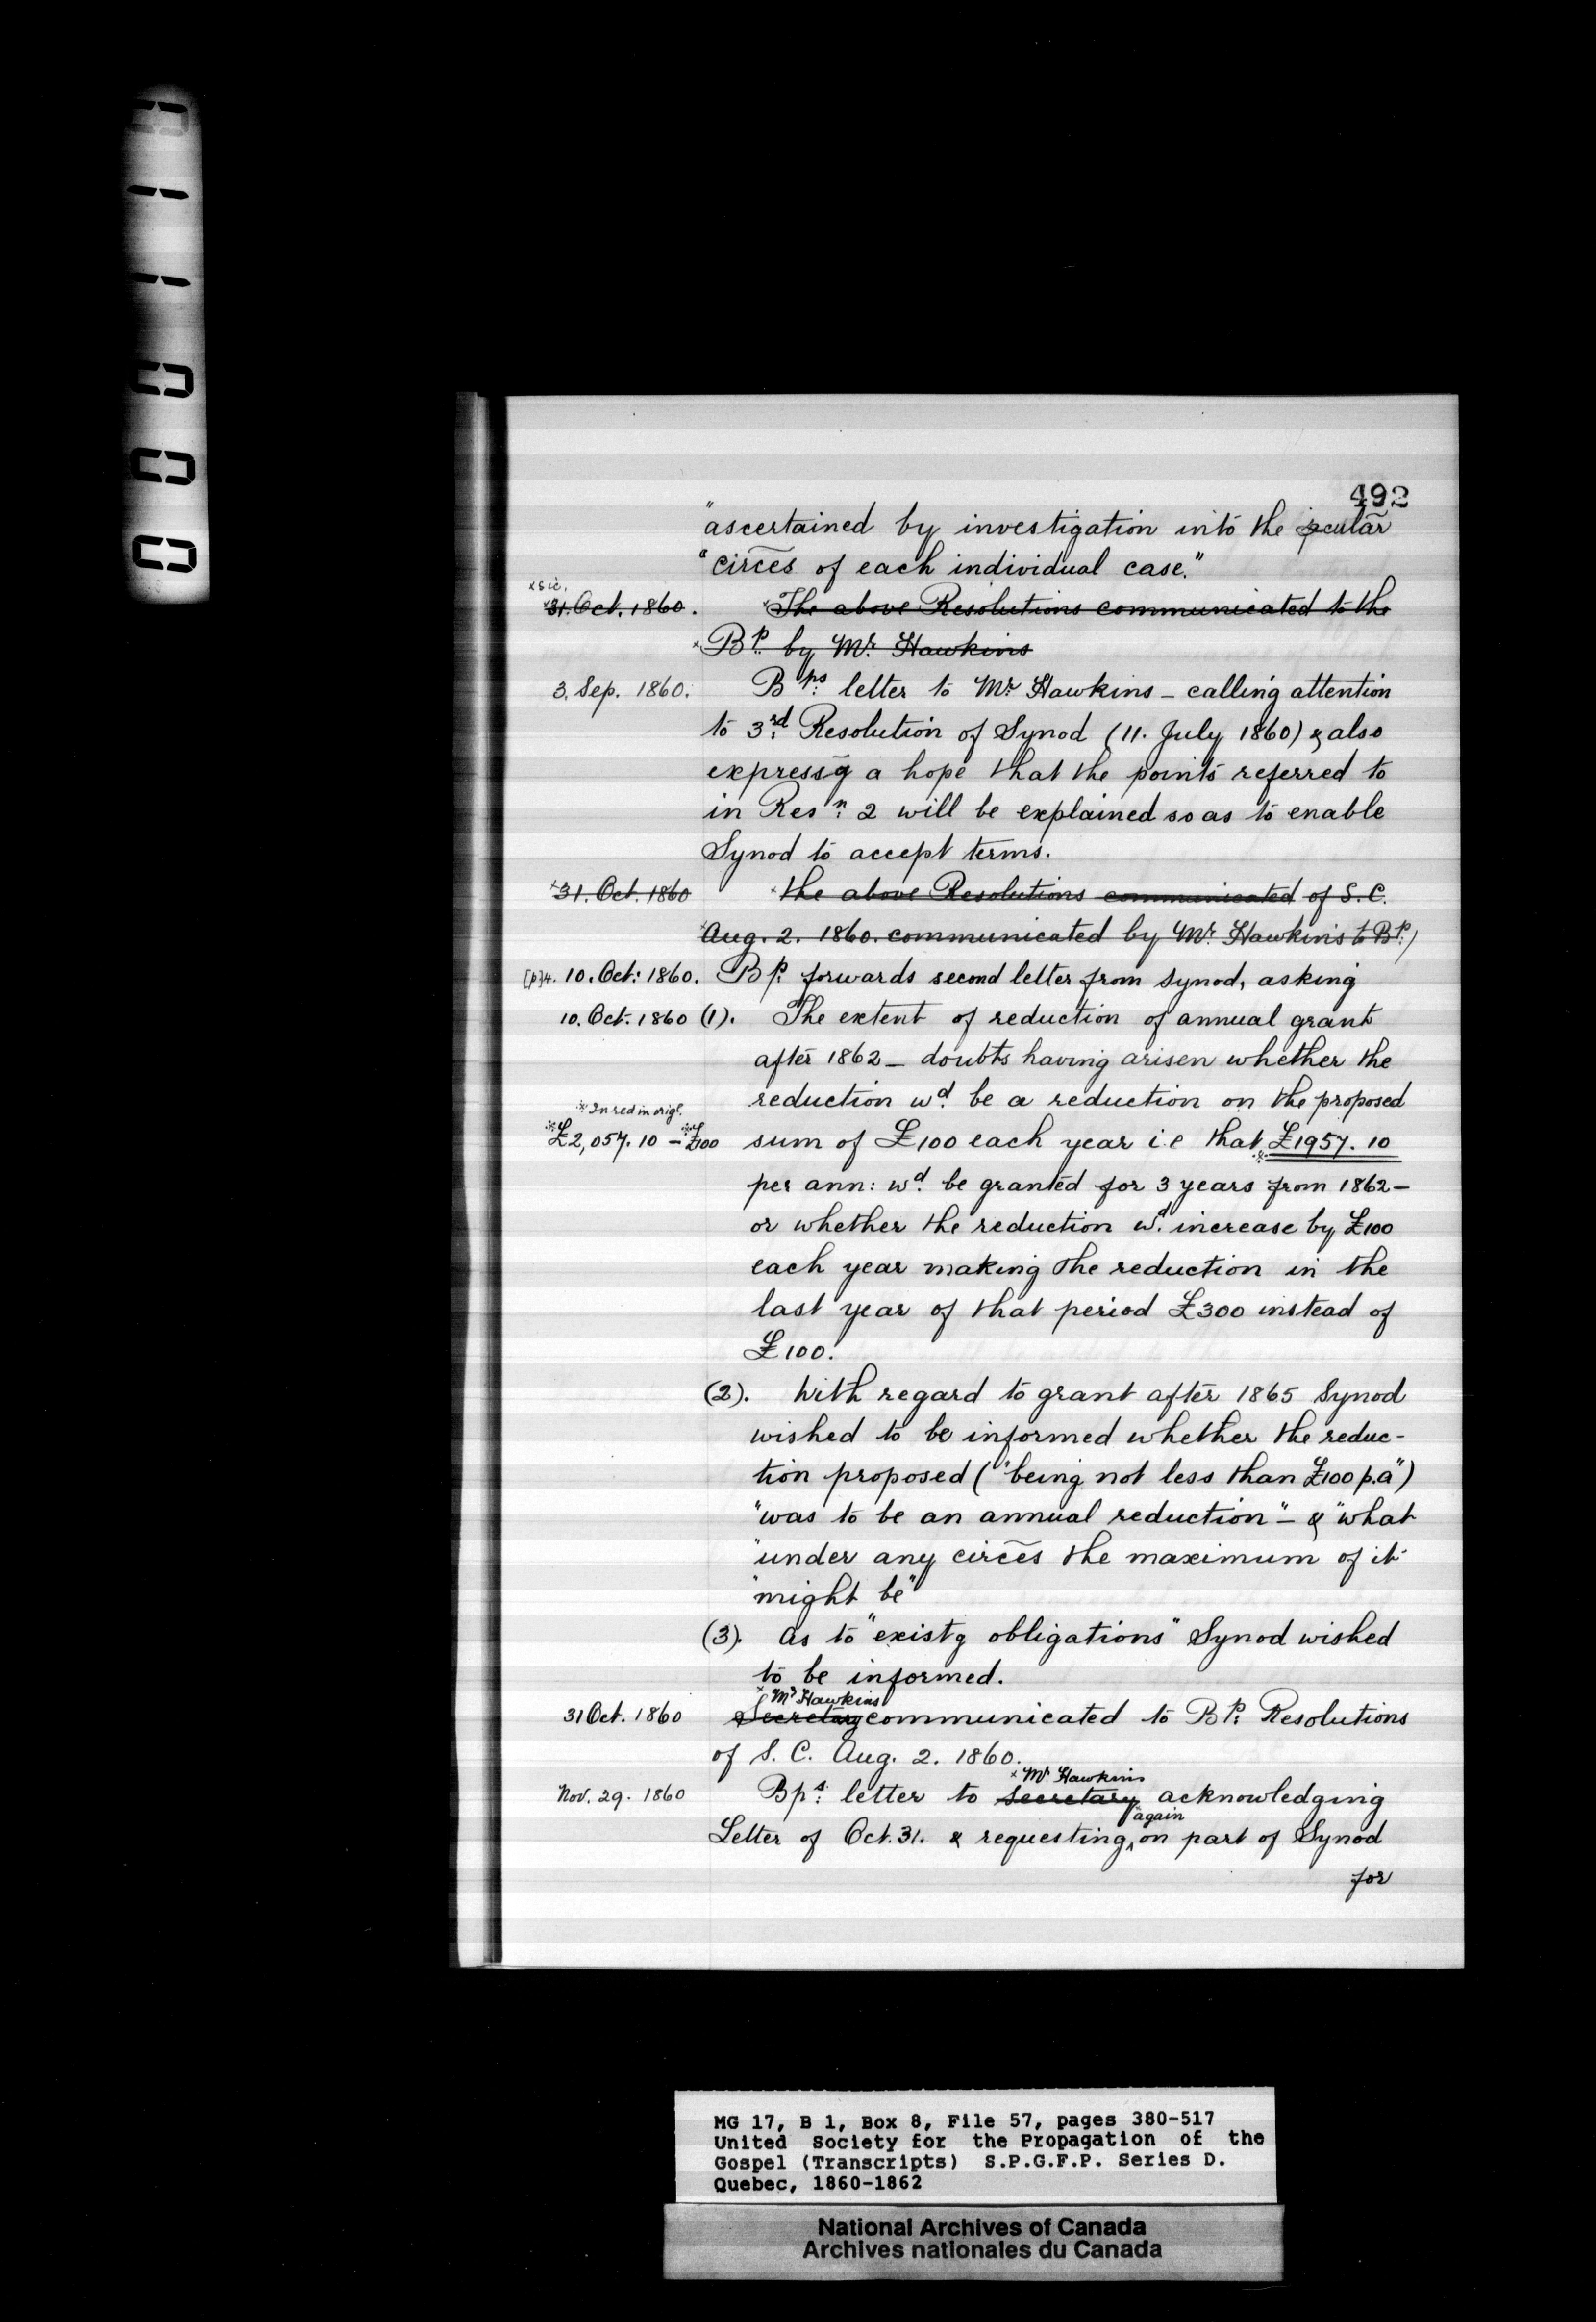 492
"ascertained by investigation into the pculār
"circēs of each individual case."
x sic.
x31. Oct. 1860. xThe above Resolutions communicated to the
x Bp. by Mr. Hawkins
3. Sep. 1860. Bps: letter to Mr. Hawkins - calling attention
to 3rd. Resolution of Synod (11. July 1860) & also
express̄g a hope that the points referred to
in Resn: 2 will be explained so as to enable
Synod to accept terms.
x31. Oct. 1860 xthe above Resolutions communicated of S. C.
Aug. 2. 1860. communicated by Mr. Hawkins to Bp:)
[p]4. 10. Oct: 1860. Bp: forwards second letter from Synod, asking
10. Oct: 1860 (1). The extent of reduction of annual grant
after 1862 - doubts having arisen whether the
reduction wd. be a reduction on the proposed
* In red in origl.
*£2,057. 10 - *£100 sum of £100 each year i.e that * £1957. 10
per ann: wd. be granted for 3 years from 1862 -
or whether the reduction wd. increase by £100
each year making the reduction in the
last year of that period £300 instead of
£100.
(2). With regard to grant after 1865 Synod
wished to be informed whether the reduc-
tion proposed ("being not less than £100 p.a")
"was to be an annual reduction" - & "what
"under any circēs the maximum of it
"might be"
(3). As to "existg obligations" Synod wished
to be informed.
x Mr Hawkins
31 Oct. 1860 Secretary communicated to Bp: Resolutions
of S. C. Aug. 2. 1860.
x Mr. Hawkins
Nov. 29. 1860 Bps: letter to Secretary acknowledging
again
Letter of Oct. 31. & requesting ^ on part of Synod
for
MG 17, B 1, Box 8, File 57, pages 380-517
United Society for the Propagation of the
Gospel (Transcripts) S.P.G.F.P. Series D.
Quebec, 1860-1862
National Archives of Canada
Archives nationales du Canada